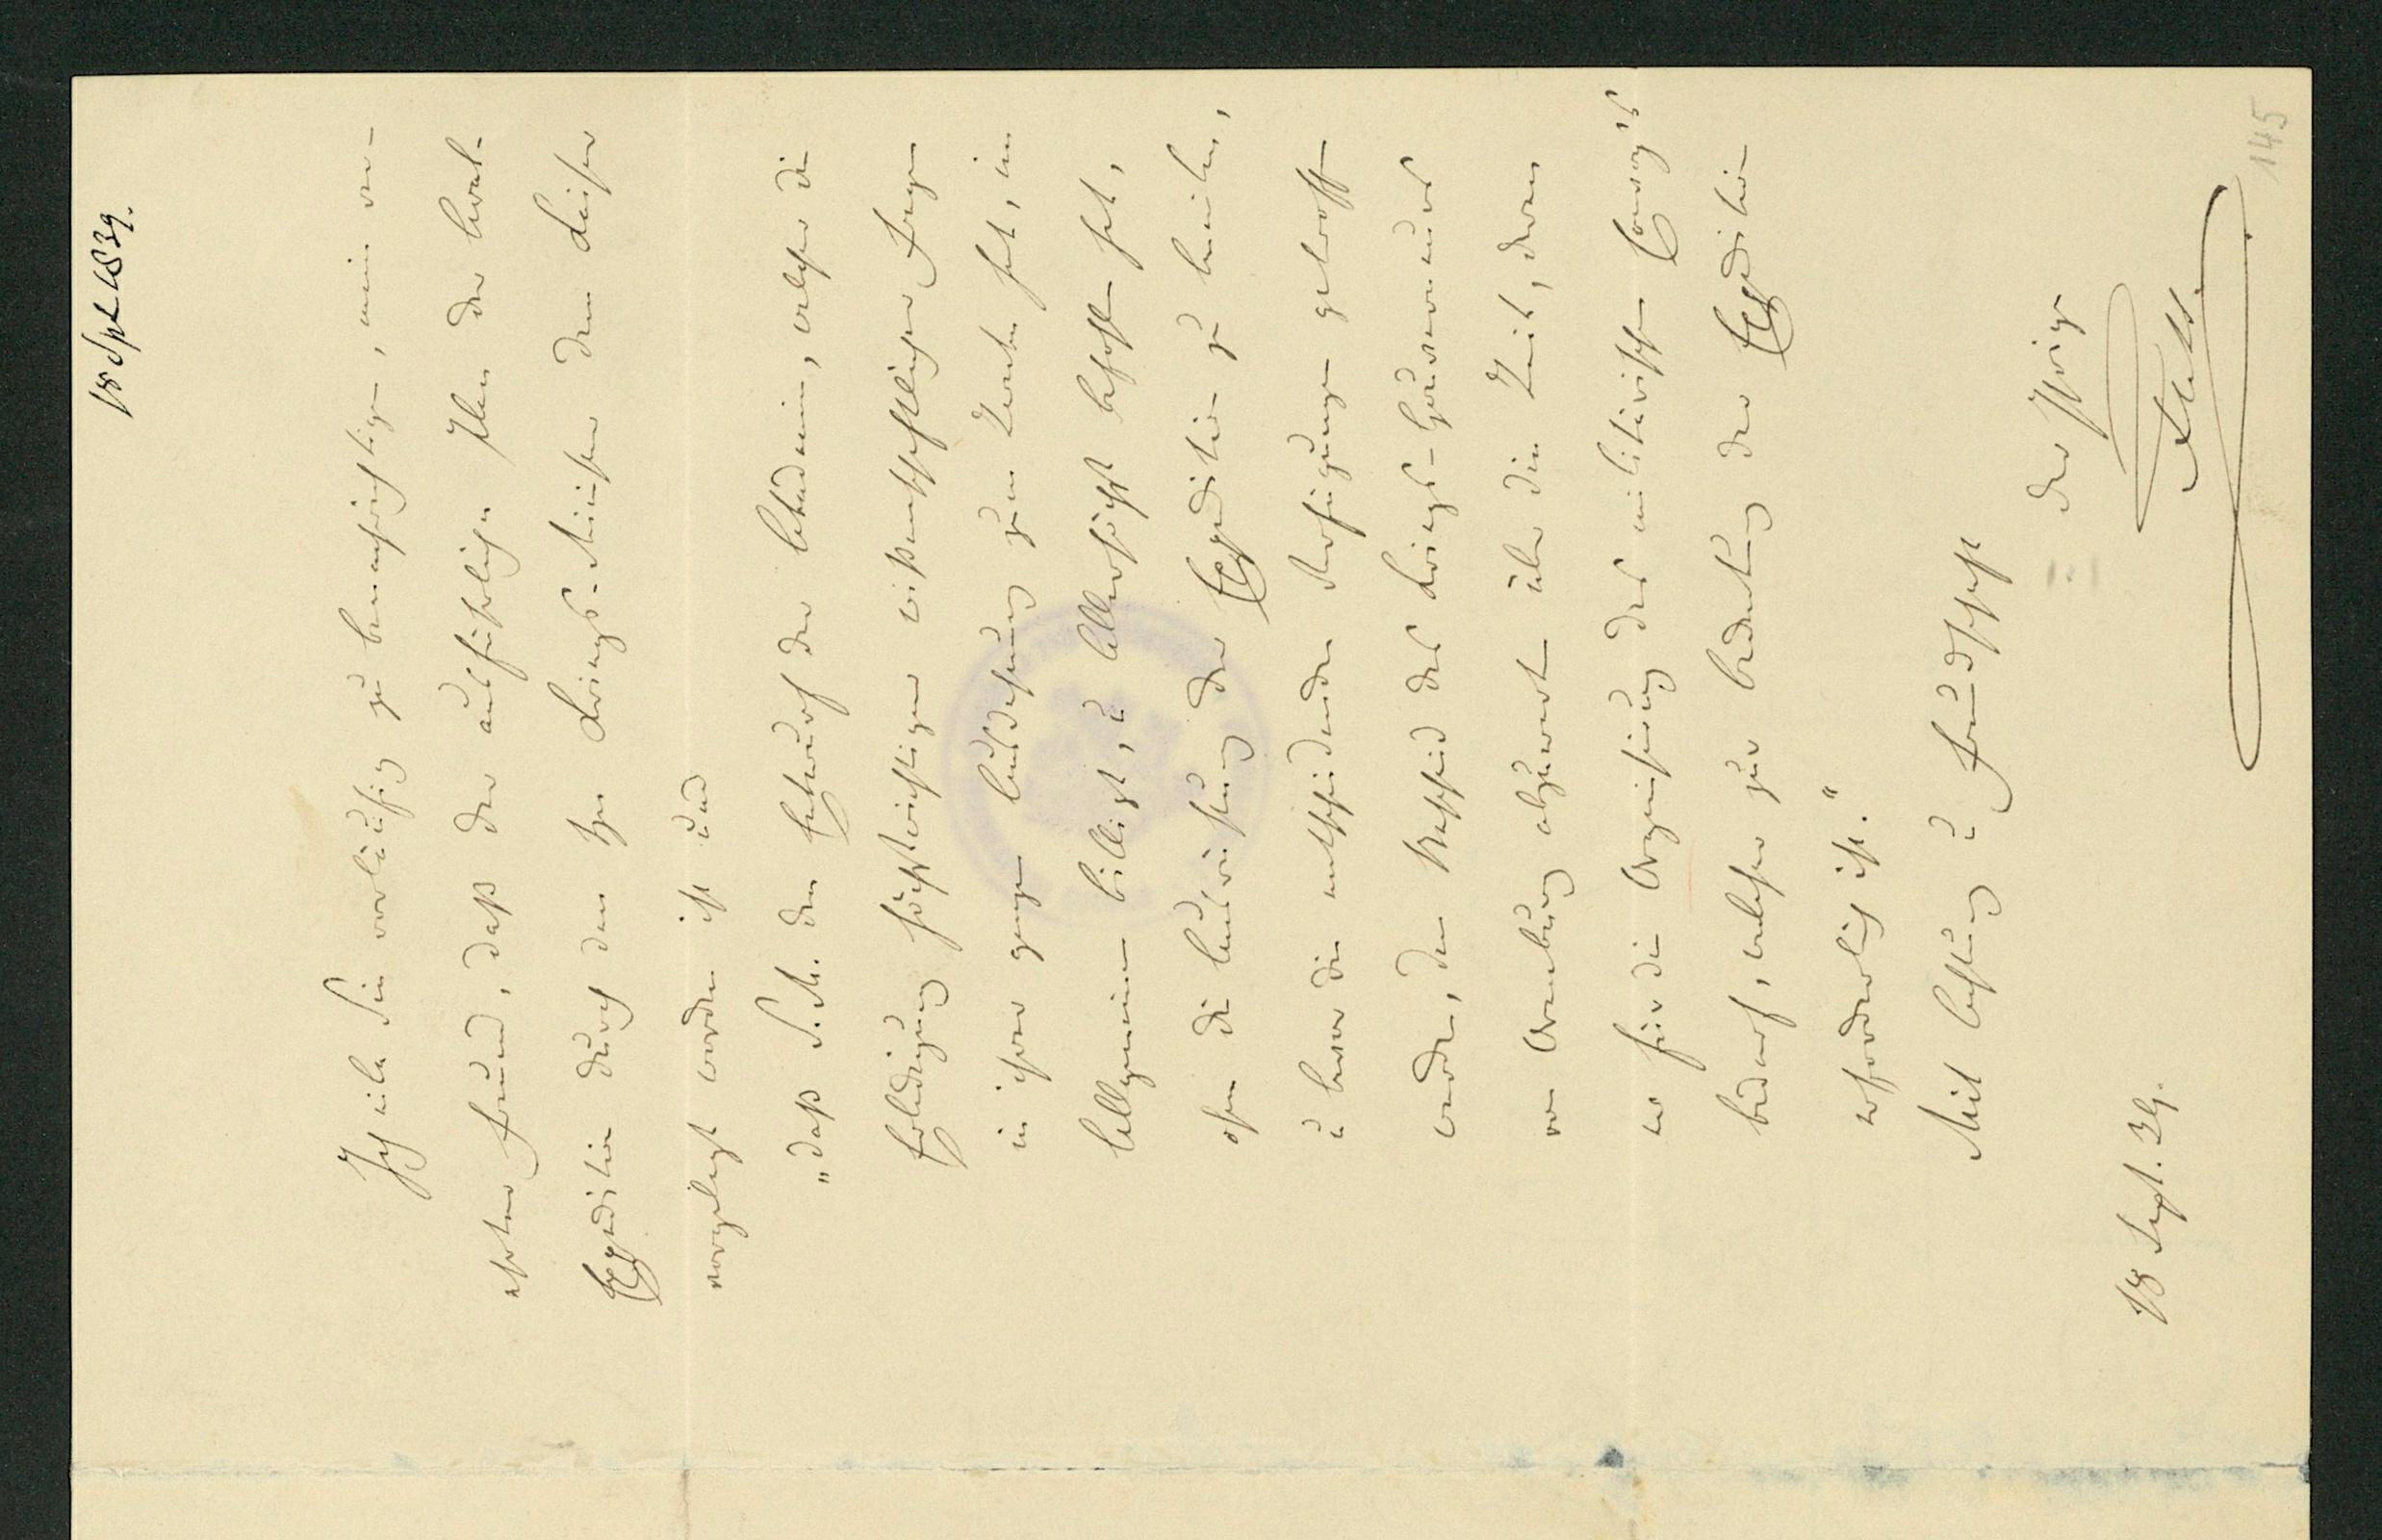 18 Spt 1839.
Ich eile Sie vorläufig zu benachrichtigen, mein ver-
ehrter Freund, daß der ausführliche Plan der Aral-
Expedition durch den Hrn Kriegs-Minister dem Kaiser
vorgelegt worden ist und
„daß S. M. den Entwurf der Akademie, welcher die
Erledigung höchst wichtiger wissenschaftlicher Fragen
in ihrer ganzen Ausdehnung zum Zwecke hat, im
Allgemeinen billigt, u Allerhöchst befohlen hat,
die Ausrüstung der Expedition zu
u bevor die entscheidenden Verfügungen getroffen
werden, den Bescheid des Kriegs-Gouverneurs
von Orenburg abzuwarten über die Zeit, deren
er für die Organisirung des militärischen Convoy's
bedarf, welcher zur Bedeckung der Expedition
erforderlich ist."
Mit Achtung u Freundschaft
der Ihrige
18 Sept. 39.
145